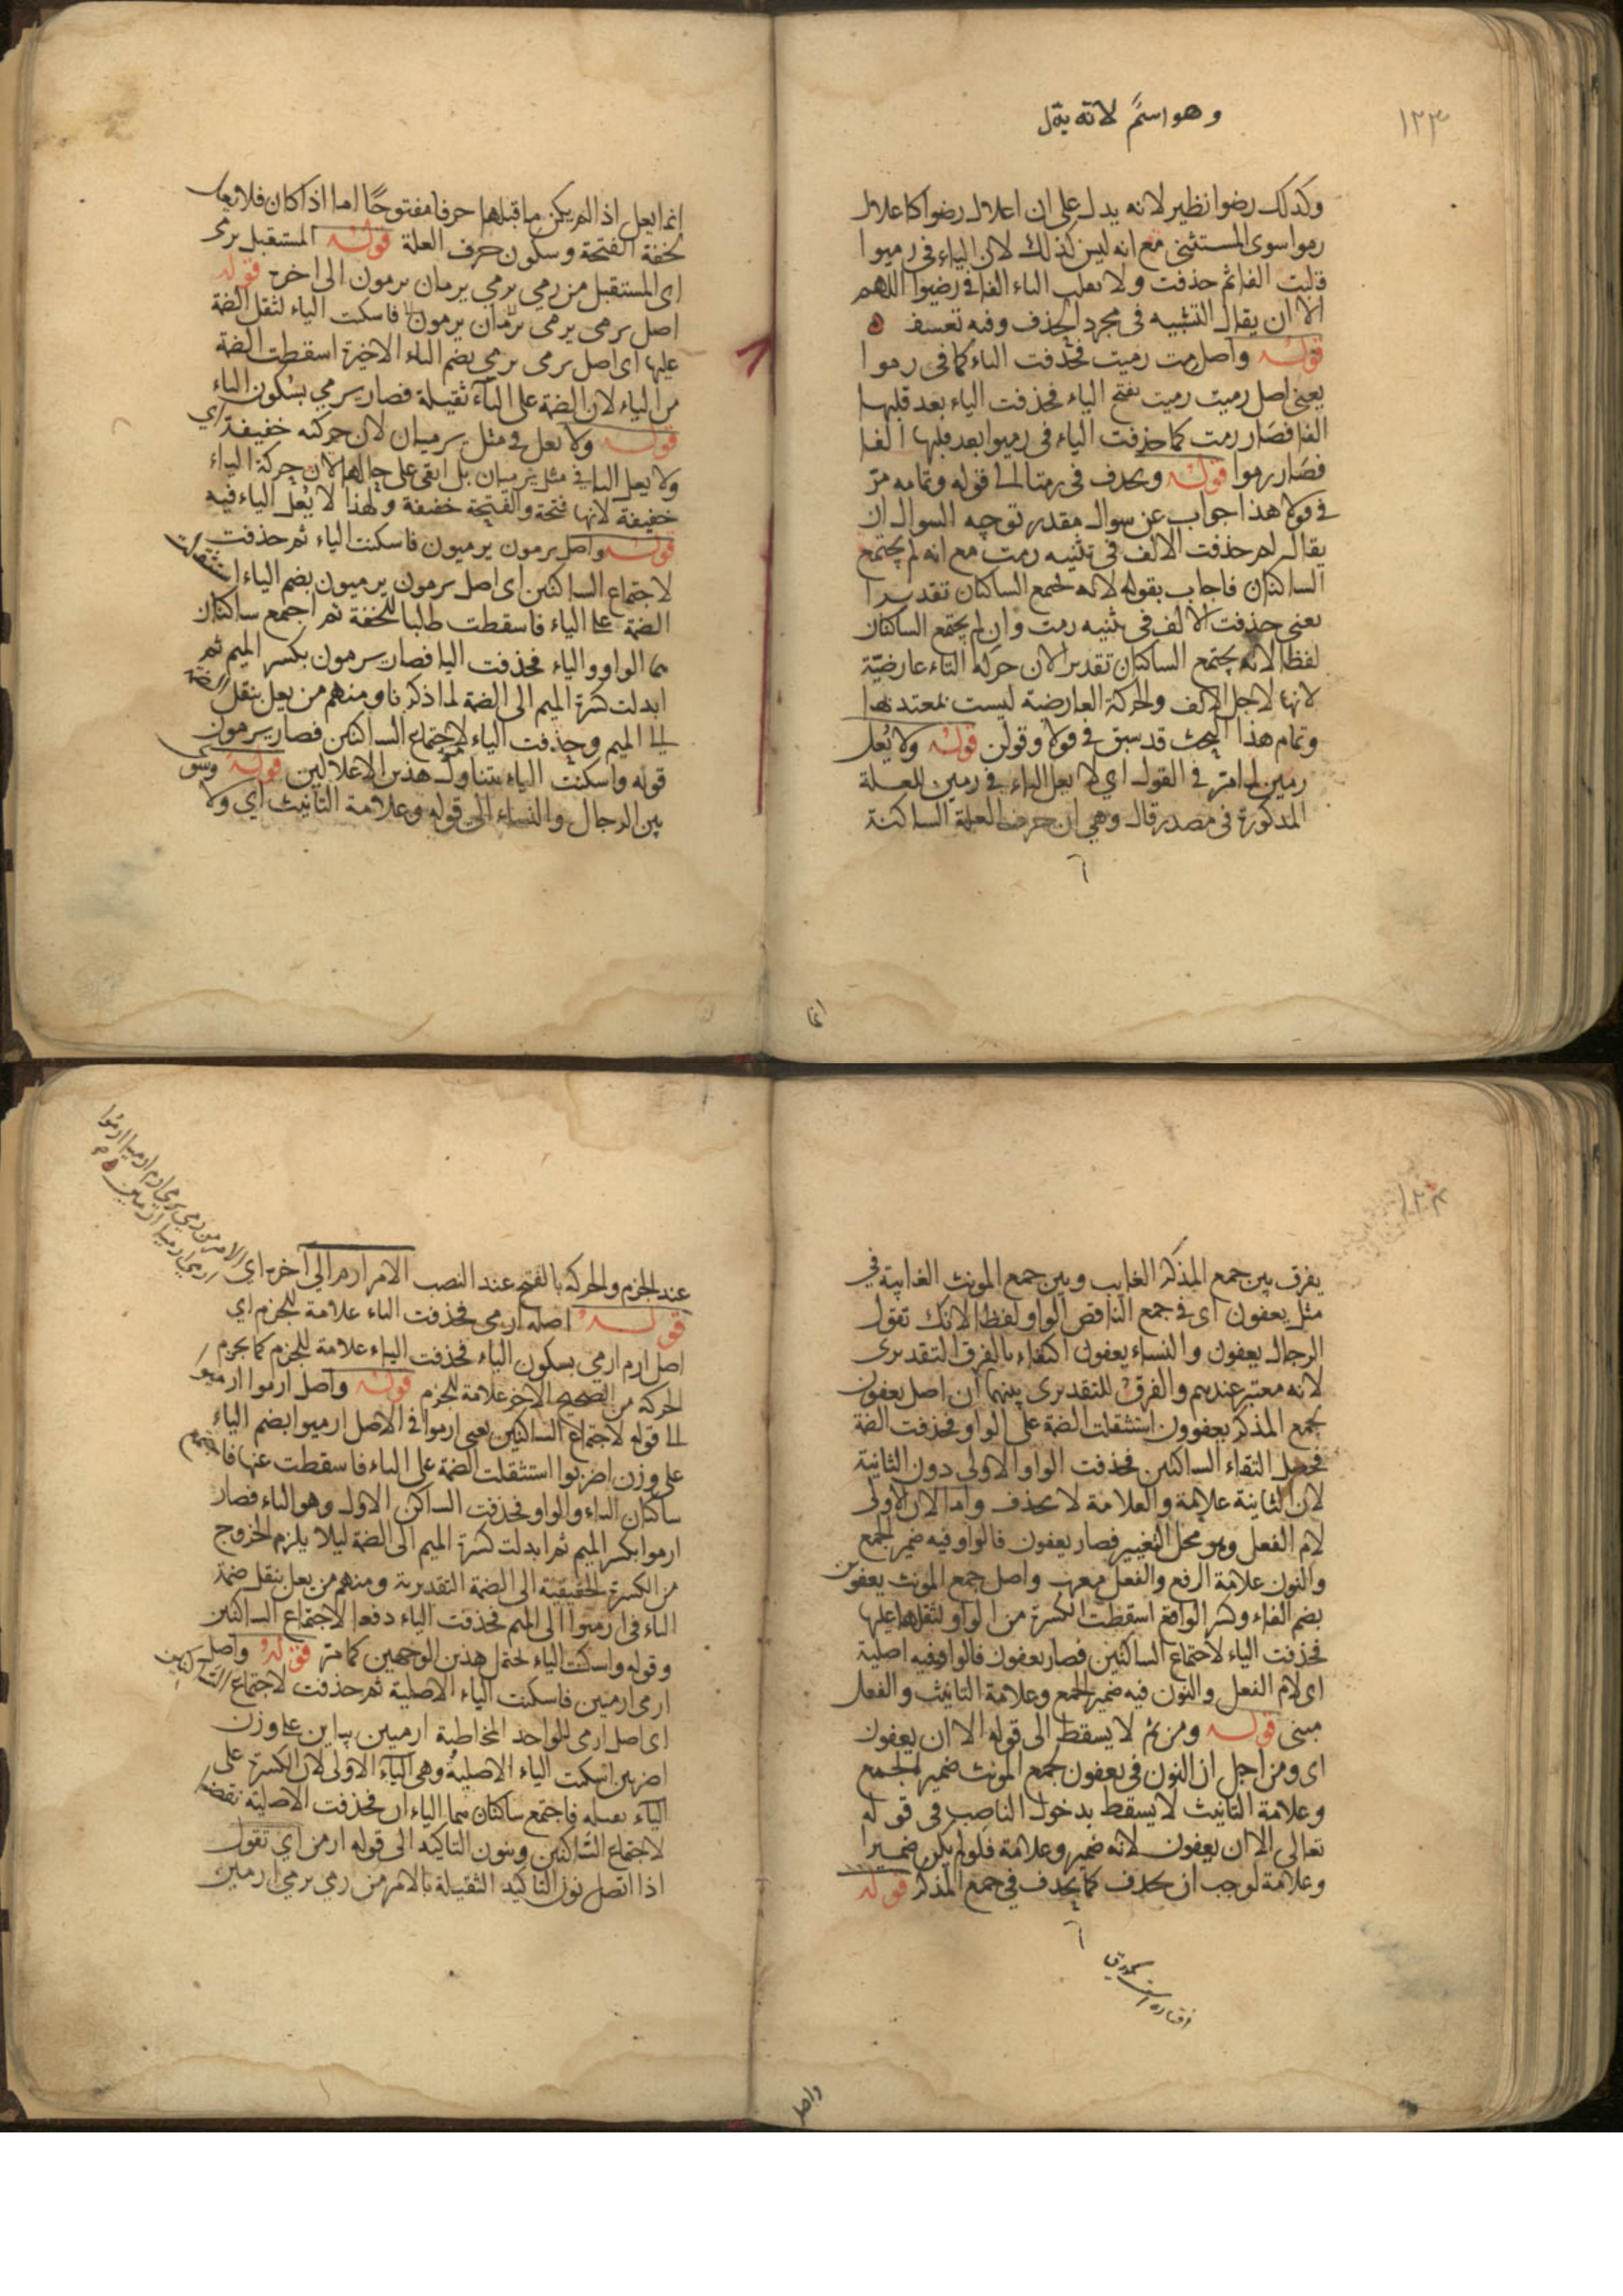 ١٢٣
وهو اسم لانه يدل
وكذلك رضوا نظير لانه يدل على ان اعلال رضوا كاعلال
رموا سوى المستثنى مع انه ليس كذلك لان الياء في رميوا
قلبت الفا ثم حذفت ولا تقلب الياء الفا في رضيوا اللهم
الا ان يقال التشبيه في مجرد الحذف وفيه تعسف ه
قوله واصل رمت رميت فحذفت الياء كما في رموا
يعني اصل رميت رميت بفتح الياء فحذفت الياء بعد قلبها
الفا فصار رمت كما حذفت الياء في رميوا بعد قلبها الفا
فصار رموا قوله ويحذف في رمتا الى قوله وتمامه مر
في قولا هذا جواب عن سوال مقدر توجيه السوال ان
يقال لم حذفت الالف في تثنيه رمت مع انه لم يجتمع
الساكنان فاجاب بقوله لانه يجمع الساكنان تقديرا
يعني حذفت الالف في تثنيه رمت وان لم يجتمع الساكنان
لفظا لانه يجتمع الساكنان تقديرا لان حركة التاء عارضية
لانها لاجل الالف والحركة العارضة ليست بمعتد بها
وتمام هذا البحث قد سبق في قولا وقولن قوله ولا يعل
رمين لما مر في القول اي لا يعل الياء في رمين للعلة
المذكورة في مصدر قال وهي ان حرف العلة الساكنة
انما
انما يعل اذا لم يكن ما قبلها حرفا مفتوحا اما اذا كان فلا يعل
لخفة الفتحة وسكون حرف العلة قوله المستقبل يرمى
اى المستقبل من رمي يرمي يرميان يرمون الى اخره قوله
اصل يرمى يرمى يرميان يرمون فاسكت الياء لثقل الضمة
عليها اى اصل يرمى يرمي بضم الياء الاخيرة اسقطت الضمة
من الياء لان الضمة على الياء ثقيلة فصار يرمي بسكون الياء
قوله ولا يعل في مثل يرميان لان حركته خفيفة اي
ولا يعل اليا في مثل يرميان بل ابقى على حالها لان حركة الياء
خفيفة لانها فتحة والفتحة خفيفة ولهذا لا يعل الياء فيه
قوله واصل يرمون يرميون فاسكنت الياء ثم حذفت
لاجتماع الساكنين اى اصل يرمون يرميون بضم الياء استثقلت
الضمة على الياء فاسقطت طلبا للخفة ثم اجمع ساكنان
هما الواو والياء فحذفت اليا فصار يرمون بكسر الميم ثم
ابدلت كسرة الميم الى الضمة لما ذكرنا ومنهم من يعل بنقل الضمة
الى الميم وحذفت الياء لاجتماع الساكنين فصار يرمون
قوله واسكنت الياء يتناول هذين الاعلالين قوله وسوى
بين الرجال والنساء الى قوله وعلامة التانيث اي ولا
١٢٤
يفرق بين جمع المذكر الغايب وبين جمع المونث الغايبة في
مثل يعفون اى في جمع الناقص الواو لفظا لانك تقول
الرجال يعفون والنساء يعفون اكتفاء بالفرق التقديرى
لانه معتبر عندهم والفرق التقديرى بينهما ان اصل يعفون
لجمع المذكر يعفوون استثقلت الضمة على الواو فحذفت الضمة
فحصل التقاء الساكنين فحذفت الواو الاولى دون الثانية
لان الثانية علامة والعلامة لا تحذف واما لان الاولى
لام الفعل وهو محل التغيير فصار يعفون فالواو فيه ضمير الجمع
والنون علامة الرفع والفعل معرب واصل جمع المونث يعفوين
بضم الفاء وكسر الواو فقد اسقطت الكسرة من الواو لثقلها عليها
فحذفت الياء لاجتماع الساكنين فصار يعفون فالواو فيه اصلية
اى لام الفعل والنون فيه ضمير الجمع وعلامة التانيث والفعل
مبنى قوله ومن ثم لا يسقط الى قوله الا ان يعفون
اى ومن اجل ان النون في يعفون جمع المونث ضمير الجمع
وعلامة التانيث لا يسقط بدخول الناصب في قوله
تعالى الا ان يعفون لانه ضمير وعلامة فلو لم يكن ضميرا
وعلامة لوجب ان يحذف كما يحذف في جمع المذكر قوله
واصل
الامر من رمي يرمي ارم ارميا ارموا
ارمي ارميا ارمين
عند الجزم والحركة بالفتح عند النصب الامر ارم الى اخره اي
قوله اصله ارمى فحذفت الياء علامة للجزم اي
اصل ارم ارمي بسكون الياء فحذفت الياء علامة للجزم كما يجزم
الحركة من الصحيح الاخر علامة للجزم قوله واصل ارموا ارميوا
الى قوله لاجتماع الساكنين يعنى ارموا في الاصل ارميوا بضم الياء
على وزن اضربوا استثقلت الضمة على الياء فاسقطت عنها فاجتمع
ساكنان الياء والواو فحذفت الساكن الاول وهو الياء فصار
ارموا بكسر الميم ثم ابدلت كسرة الميم الى الضمة ليلا يلزم الخروج
من الكسرة الحقيقية الى الضمة التقديرية ومنهم من يعل بنقل ضمة
الياء في ارميوا الى الميم فحذفت الياء دفعا لاجتماع الساكنين
وقوله واسكنت الياء يحتمل هذين الوجهين كما مر قوله واصل
ارمى ارميين فاسكنت الياء الاصلية ثم حذفت لاجتماع الساكنين
اى اصل ارمى للواحد المخاطبة ارميين بيايين على وزن
اضربين اسكنت الياء الاصلية وهي الياء الاولى لان الكسرة على
الياء ثقيلة فاجتمع ساكنان هما الياءان فحذفت الاصلية
لاجتماع الساكنين وبنون التاكيد الى قوله ارمن اي تقول
اذا اتصل نون التاكيد الثقيلة بالامر من رمي يرمي ارمين